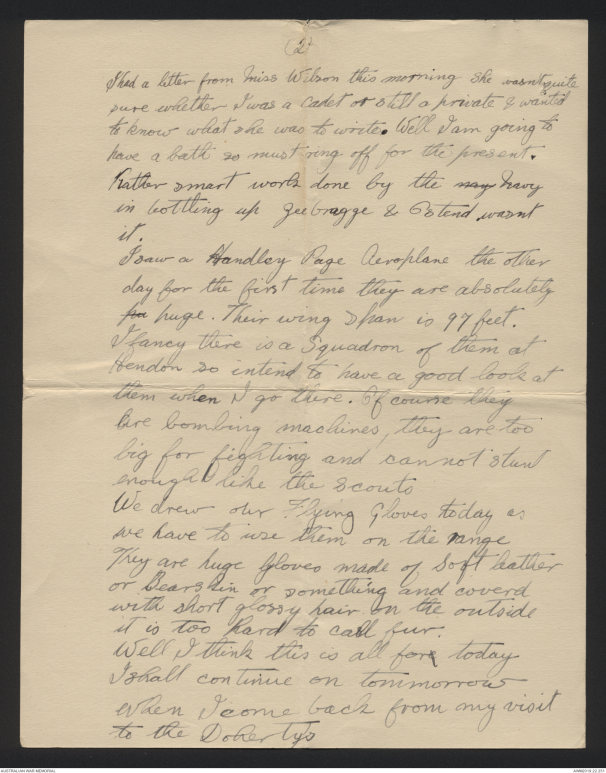 (2)
I had a letter from Miss Wilson this morning she wasnt quite
sure whether I was a cadet or still a private & wanted
to know what she was to write. Well I am going to
have a bath so must ring off for the present.
Rather smart work done by the navy Navy
in bottling up Zeebragge & Ostend wasnt
it.
I saw a Handley Page Aeroplane the other
day for the first time they are absolutely
huge. Their wing span is 97 feet.
I fancy there is a Squadron of them at
Hendon so intend to have a good look at
them when I go there. Of course they
are bombing machines, they are too
big for fighting and cannot stunt
enough like the scouts
We drew our Flying Gloves today as
we have to use them on the range
They are huge Gloves made of Soft leather
or Bearskin or something and coverd
with short glossy hair on the outside
it is too hard to call fur.
Well I think this is all for today
I shall continue on tommorrow
when I come back from my visit
to the Dohertys
AUSTRALIAN WAR MEMORIAL